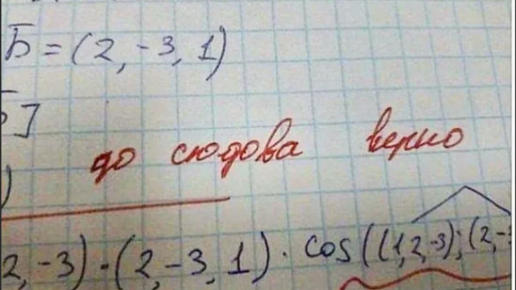 b̅ = (2, -3, 1)
b̅]
до сюдова верно
)
2, -3) · (2, -3, 1) · cos((1, 2, -3); (2, -3